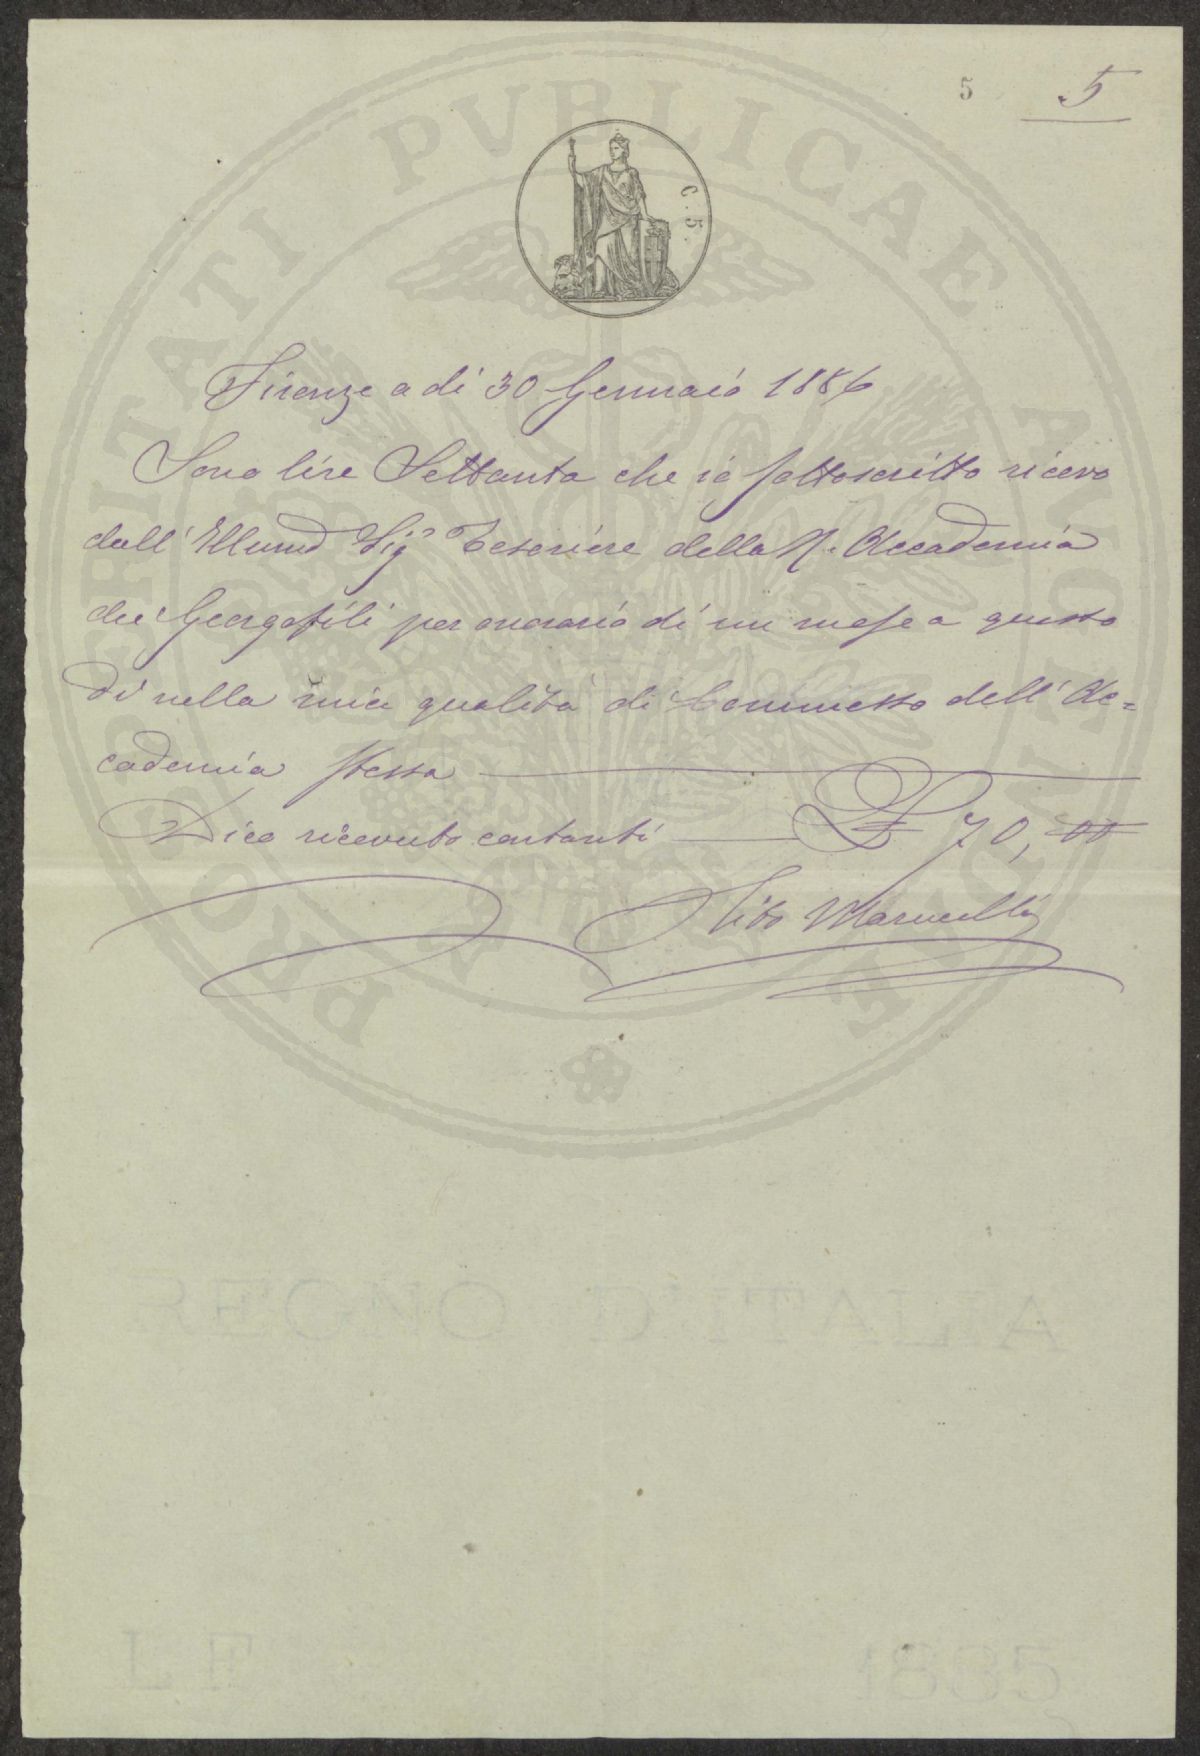 5 5
C. 5.
PROSPERITATI PVBLICAE AVGENDAE
Firenze a di 30 Gennaio 1886
Sono lire Settanta che io sottoscritto ricevo
dall' Illumo Sigr Tesoriere della R. Accademia
dei Georgofili per onorario di un mese a questo
dì nella mia qualità di Commesso dell' Ac=
cademia stessa
Dico ricevuto contanti £ 70, 00
Tito Marucelli
REGNO D'ITALIA
L F 1885